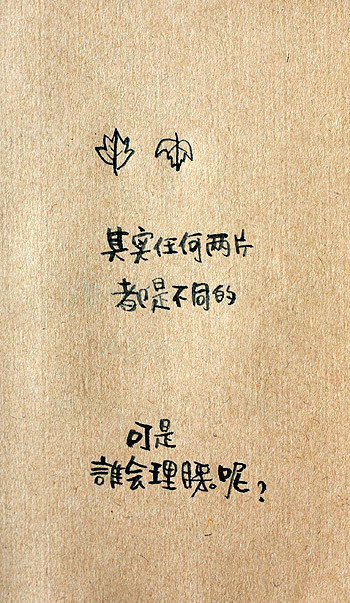 其实任何两片
都是不同的
可是
誰会理睬呢?